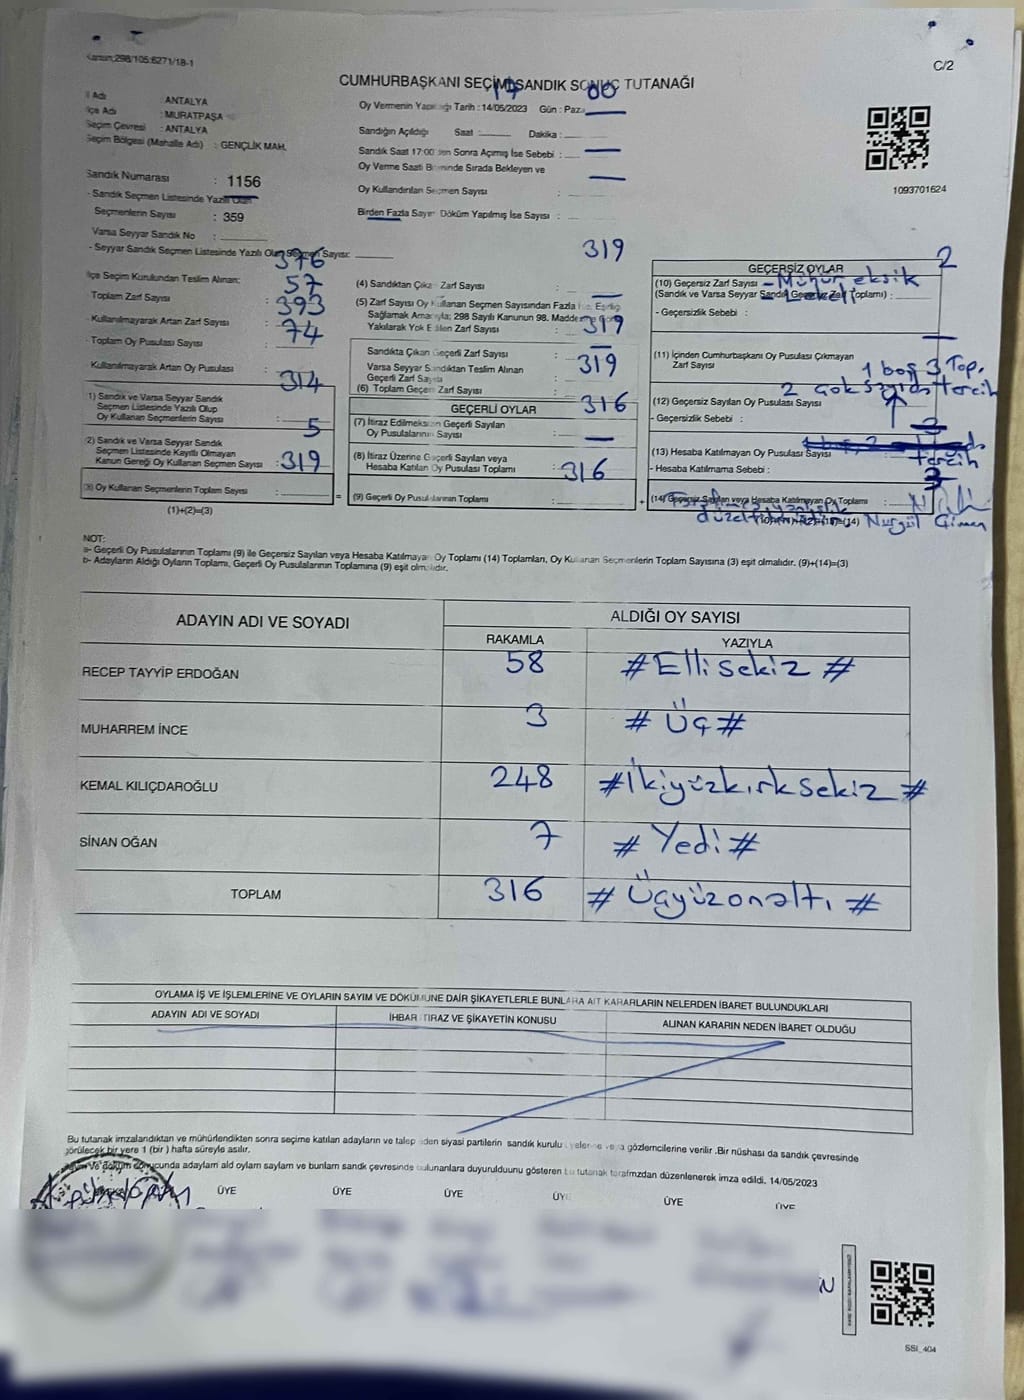 Kanun:298/105:6271/18-1
C/2
CUMHURBAŞKANI SEÇİMİ SANDIK SONUÇ TUTANAĞI
İl Adı : ANTALYA
İlçe Adı : MURATPAŞA
Seçim Çevresi : ANTALYA
Seçim Bölgesi (Mahalle Adı) : GENÇLİK MAH.
Sandık Numarası : 1156
- Sandık Seçmen Listesinde Yazılı Olan
Seçmenlerin Sayısı : 359
Varsa Seyyar Sandık No :
- Seyyar Sandık Seçmen Listesinde Yazılı Olan Seçmen Sayısı:
17 00
Oy Vermenin Yapıldığı Tarih : 14/05/2023 Gün : Pazar
Sandığın Açıldığı Saat : Dakika :
Sandık Saat 17:00 den Sonra Açımış İse Sebebi :
Oy Verme Saati Bitiminde Sırada Bekleyen ve
Oy Kullandırılan Seçmen Sayısı :
Birden Fazla Sayım Döküm Yapılmış İse Sayısı :
1093701624
376
İlçe Seçim Kurulundan Teslim Alınan:
57
Toplam Zarf Sayısı :
393
- Kullanılmayarak Artan Zarf Sayısı :
74
- Toplam Oy Pusulası Sayısı :
- Kullanılmayarak Artan Oy Pusulası :
314
(1) Sandık ve Varsa Seyyar Sandık
Seçmen Listesinde Yazılı Olup
Oy Kullanan Seçmenlerin Sayısı :
5
(2) Sandık ve Varsa Seyyar Sandık
Seçmen Listesinde Kayıtlı Olmayan
Kanun Gereği Oy Kullanan Seçmen Sayısı :
319
(3) Oy Kullanan Seçmenlerin Toplam Sayısı :
(1)+(2)=(3)
319
(4) Sandıktan Çıkan Zarf Sayısı :
(5) Zarf Sayısı Oy Kullanan Seçmen Sayısından Fazla İse, Eşitliği
Sağlamak Amacıyla; 298 Sayılı Kanunun 98. Maddesine Göre
Yakılarak Yok Edilen Zarf Sayısı :
319
Sandıkta Çıkan Geçerli Zarf Sayısı :
Varsa Seyyar Sandıktan Teslim Alınan
Geçerli Zarf Sayısı :
319
(6) Toplam Geçerli Zarf Sayısı :
GEÇERLİ OYLAR
316
(7) İtiraz Edilmeksizin Geçerli Sayılan
Oy Pusulalarının Sayısı :
(8) İtiraz Üzerine Geçerli Sayılan veya
Hesaba Katılan Oy Pusulası Toplamı :
316
= (9) Geçerli Oy Pusulalarının Toplamı : +
GEÇERSİZ OYLAR
2
(10) Geçersiz Zarf Sayısı - Mühür eksik
(Sandık ve Varsa Seyyar Sandık Geçersiz Zarf Toplamı) :
- Geçersizlik Sebebi :
(11) İçinden Cumhurbaşkanı Oy Pusulası Çıkmayan
Zarf Sayısı
1 boş 3 Top.
2 çok sayıda tercih
(12) Geçersiz Sayılan Oy Pusulası Sayısı
- Geçersizlik Sebebi :
3
(13) Hesaba Katılmayan Oy Pusulası Sayısı
tercih
- Hesaba Katılmama Sebebi :
3
(14) Geçersiz Sayılan veya Hesaba Katılmayan Oy Toplamı
(10)+(11)+(12)+(13)=(14)
NOT:
a- Geçerli Oy Pusulalarının Toplamı (9) ile Geçersiz Sayılan veya Hesaba Katılmayan Oy Toplamı (14) Toplamları, Oy Kullanan Seçmenlerin Toplam Sayısına (3) eşit olmalıdır. (9)+(14)=(3)
b- Adayların Aldığı Oyların Toplamı, Geçerli Oy Pusulalarının Toplamına (9) eşit olmalıdır.
ADAYIN ADI VE SOYADI
ALDIĞI OY SAYISI
RAKAMLA YAZIYLA
RECEP TAYYİP ERDOĞAN 58 #Ellisekiz#
MUHARREM İNCE 3 #Üç#
KEMAL KILIÇDAROĞLU 248 #İkiyüzkırksekiz#
SİNAN OĞAN 7 #Yedi#
TOPLAM 316 #Üçyüzonaltı#
OYLAMA İŞ VE İŞLEMLERİNE VE OYLARIN SAYIM VE DÖKÜMÜNE DAİR ŞİKAYETLERLE BUNLARA AİT KARARLARIN NELERDEN İBARET BULUNDUKLARI
ADAYIN ADI VE SOYADI İHBAR İTİRAZ VE ŞİKAYETİN KONUSU ALINAN KARARIN NEDEN İBARET OLDUĞU
Bu tutanak imzalandıktan ve mühürlendikten sonra seçime katılan adayların ve talep eden siyasi partilerin sandık kurulu üyelerine veya gözlemcilerine verilir .Bir nüshası da sandık çevresinde
görülecek bir yere 1 (bir ) hafta süreyle asılır.
Sayım ve döküm sonucunda adaylarm ald oylarm saylarm ve bunlarm sandk çevresinde bulunanlara duyurulduunu gösteren bu tutanak tarafmzdan düzenlenerek imza edildi. 14/05/2023
ÜYE ÜYE ÜYE ÜYE ÜYE ÜYE
SSI_404